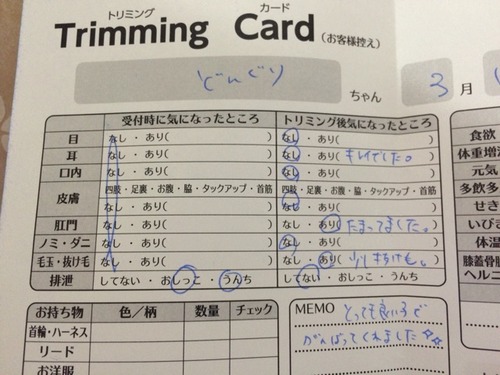 トリミング カード
Trimming Card (お客様控え)
どんぐり ちゃん 3 月
受付時に気になったところ トリミング後気になったところ
目 なし・あり( ) なし・あり( ) 食欲
耳 なし・あり( ) なし・あり(キレイでした。) 体重増
口内 なし・あり( ) なし・あり( ) 元気
皮膚 四肢・足裏・お腹・脇・タックアップ・首筋 四肢・足裏・お腹・脇・タックアップ・首筋 多飲多
なし・あり( ) なし・あり( ) せき
肛門 なし・あり( ) なし・あり(たまってました。) いびき
ノミ・ダニ なし・あり( ) なし・あり( ) 体温
毛玉・抜け毛 なし・あり( ) なし・あり(少しぬけ毛。) 膝蓋骨
排泄 してない・おしっこ・うんち してない・おしっこ・うんち ヘルニ
お持ち物 色/柄 数量 チェック
首輪・ハーネス
リード
お洋服
MEMO とっても良い子で
がんばってくれました☆☆